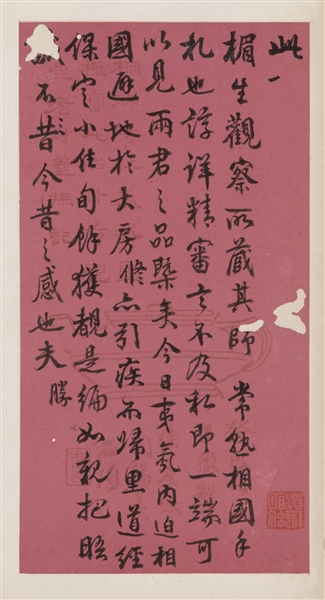 此一
楣生觀察所藏其師常熟相國手
札也諄詳精審言不及私即一端可
以見兩君之品槩矣今日事氛內迫相
國避地於大房脩亦引疾而歸里道經
保定小住旬餘獲覩是編如親把晤
不昔今昔之感也夫
勝